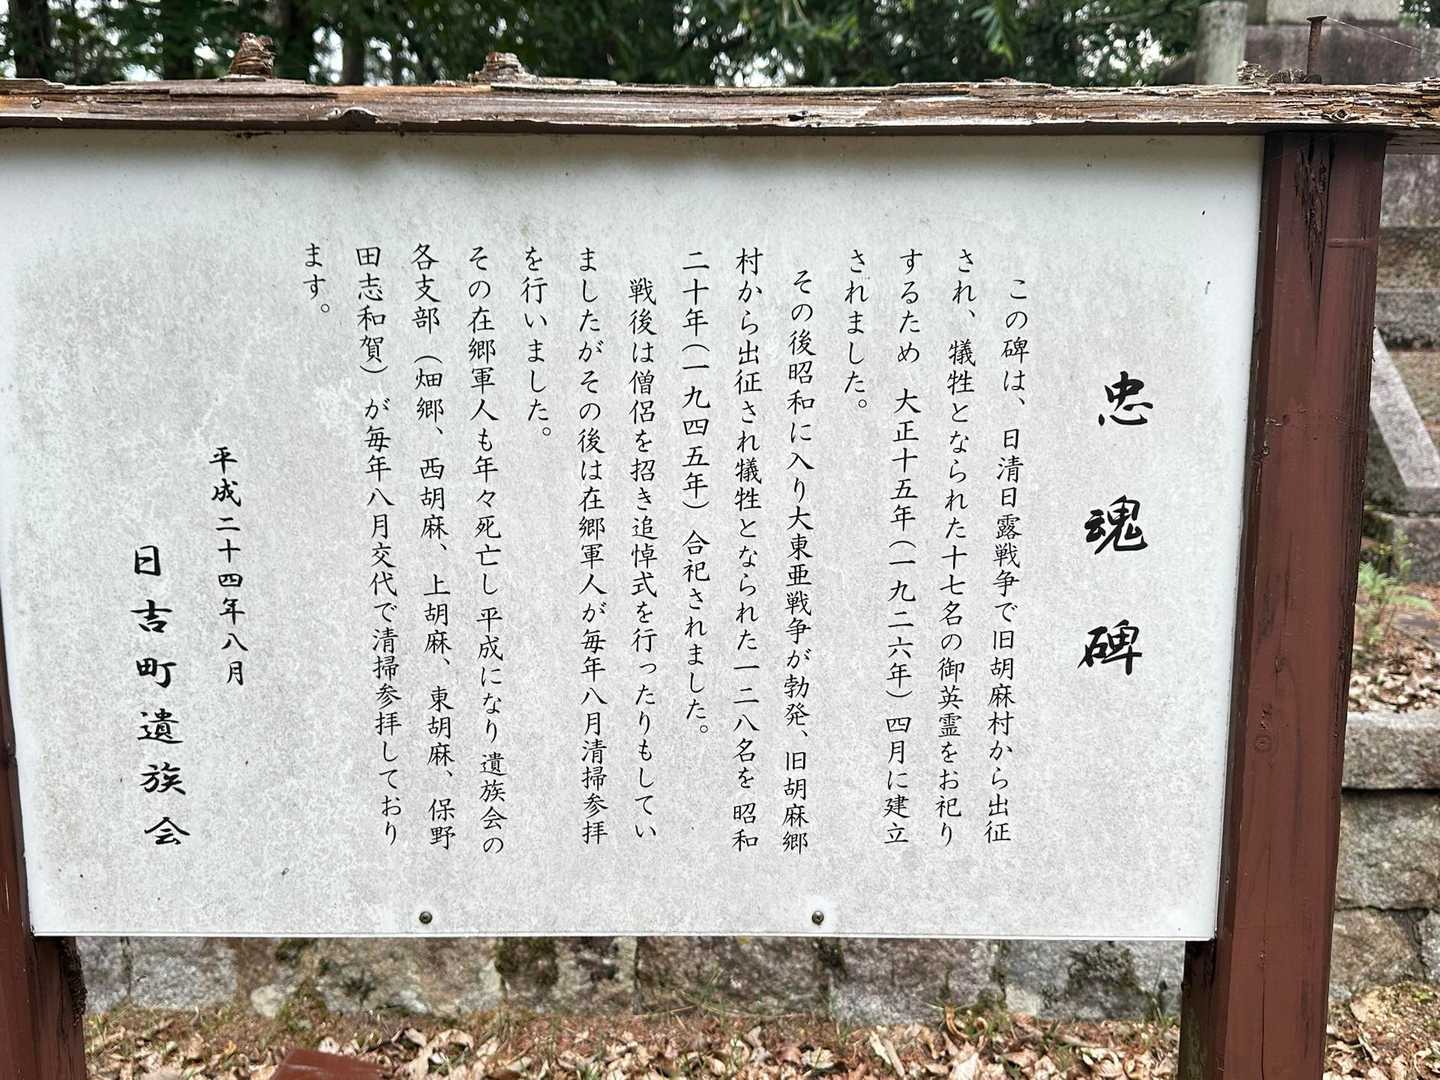 忠魂碑
この碑は、日清日露戦争で旧胡麻村から出征
され、犠牲となられた十七名の御英霊をお祀り
するため 大正十五年(一九二六年)四月に建立
されました。
その後昭和に入り大東亜戦争が勃発、旧胡麻郷
村から出征され犠牲となられた一二八名を 昭和
二十年(一九四五年)合祀されました。
戦後は僧侶を招き追悼式を行ったりもしてい
ましたがその後は在郷軍人が毎年八月清掃参拝
を行いました。
その在郷軍人も年々死亡し平成になり遺族会の
各支部(畑郷、西胡麻、上胡麻、東胡麻、保野
田志和賀)が毎年八月交代で清掃参拝しており
ます。
平成二十四年八月
日吉町遺族会